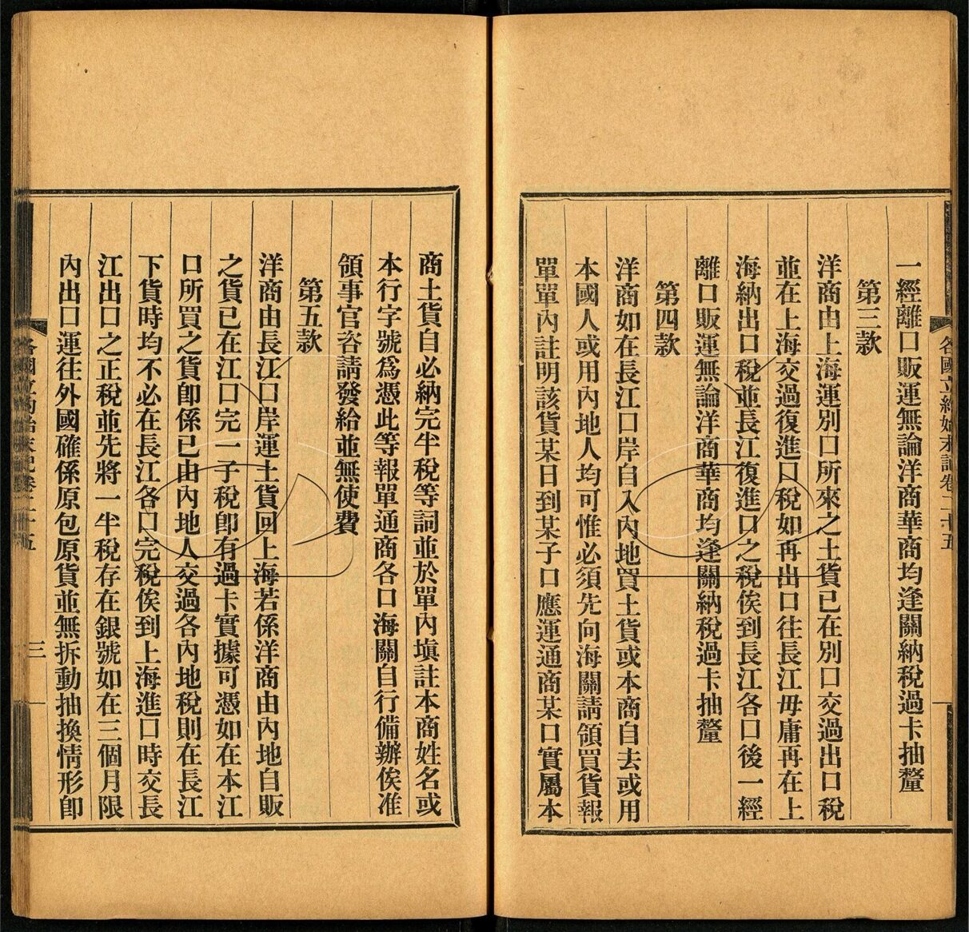 各國立約始末記卷二十五
一經離口販運無論洋商華商均逢關納稅過卡抽釐
第三款
洋商由上海運別口所來之土貨已在別口交過出口稅
並在上海交過復進口稅如再出口往長江毋庸再在上
海納出口稅並長江復進口之稅俟到長江各口後一經
離口販運無論洋商華商均逢關納稅過卡抽釐
第四款
洋商如在長江口岸自入內地買土貨或本商自去或用
本國人或用內地人均可惟必須先向海關請領買貨報
單單內註明該貨某日到某子口應運通商某口實屬本
商土貨自必納完半稅等詞並於單內塡註本商姓名或
本行字號爲憑此等報單通商各口海關自行備辦俟准
領事官咨請發給並無使費
第五款
洋商由長江口岸運土貨回上海若係洋商由內地自販
之貨已在江口完一子稅卽有過卡實據可憑如在本江
口所買之貨卽係已由內地人交過各內地稅則在長江
下貨時均不必在長江各口完稅俟到上海進口時交長
江出口之正稅並先將一半稅存在銀號如在三個月限
內出口運往外國確係原包原貨並無拆動抽換情形卽
各國立約始末記卷二十五
三